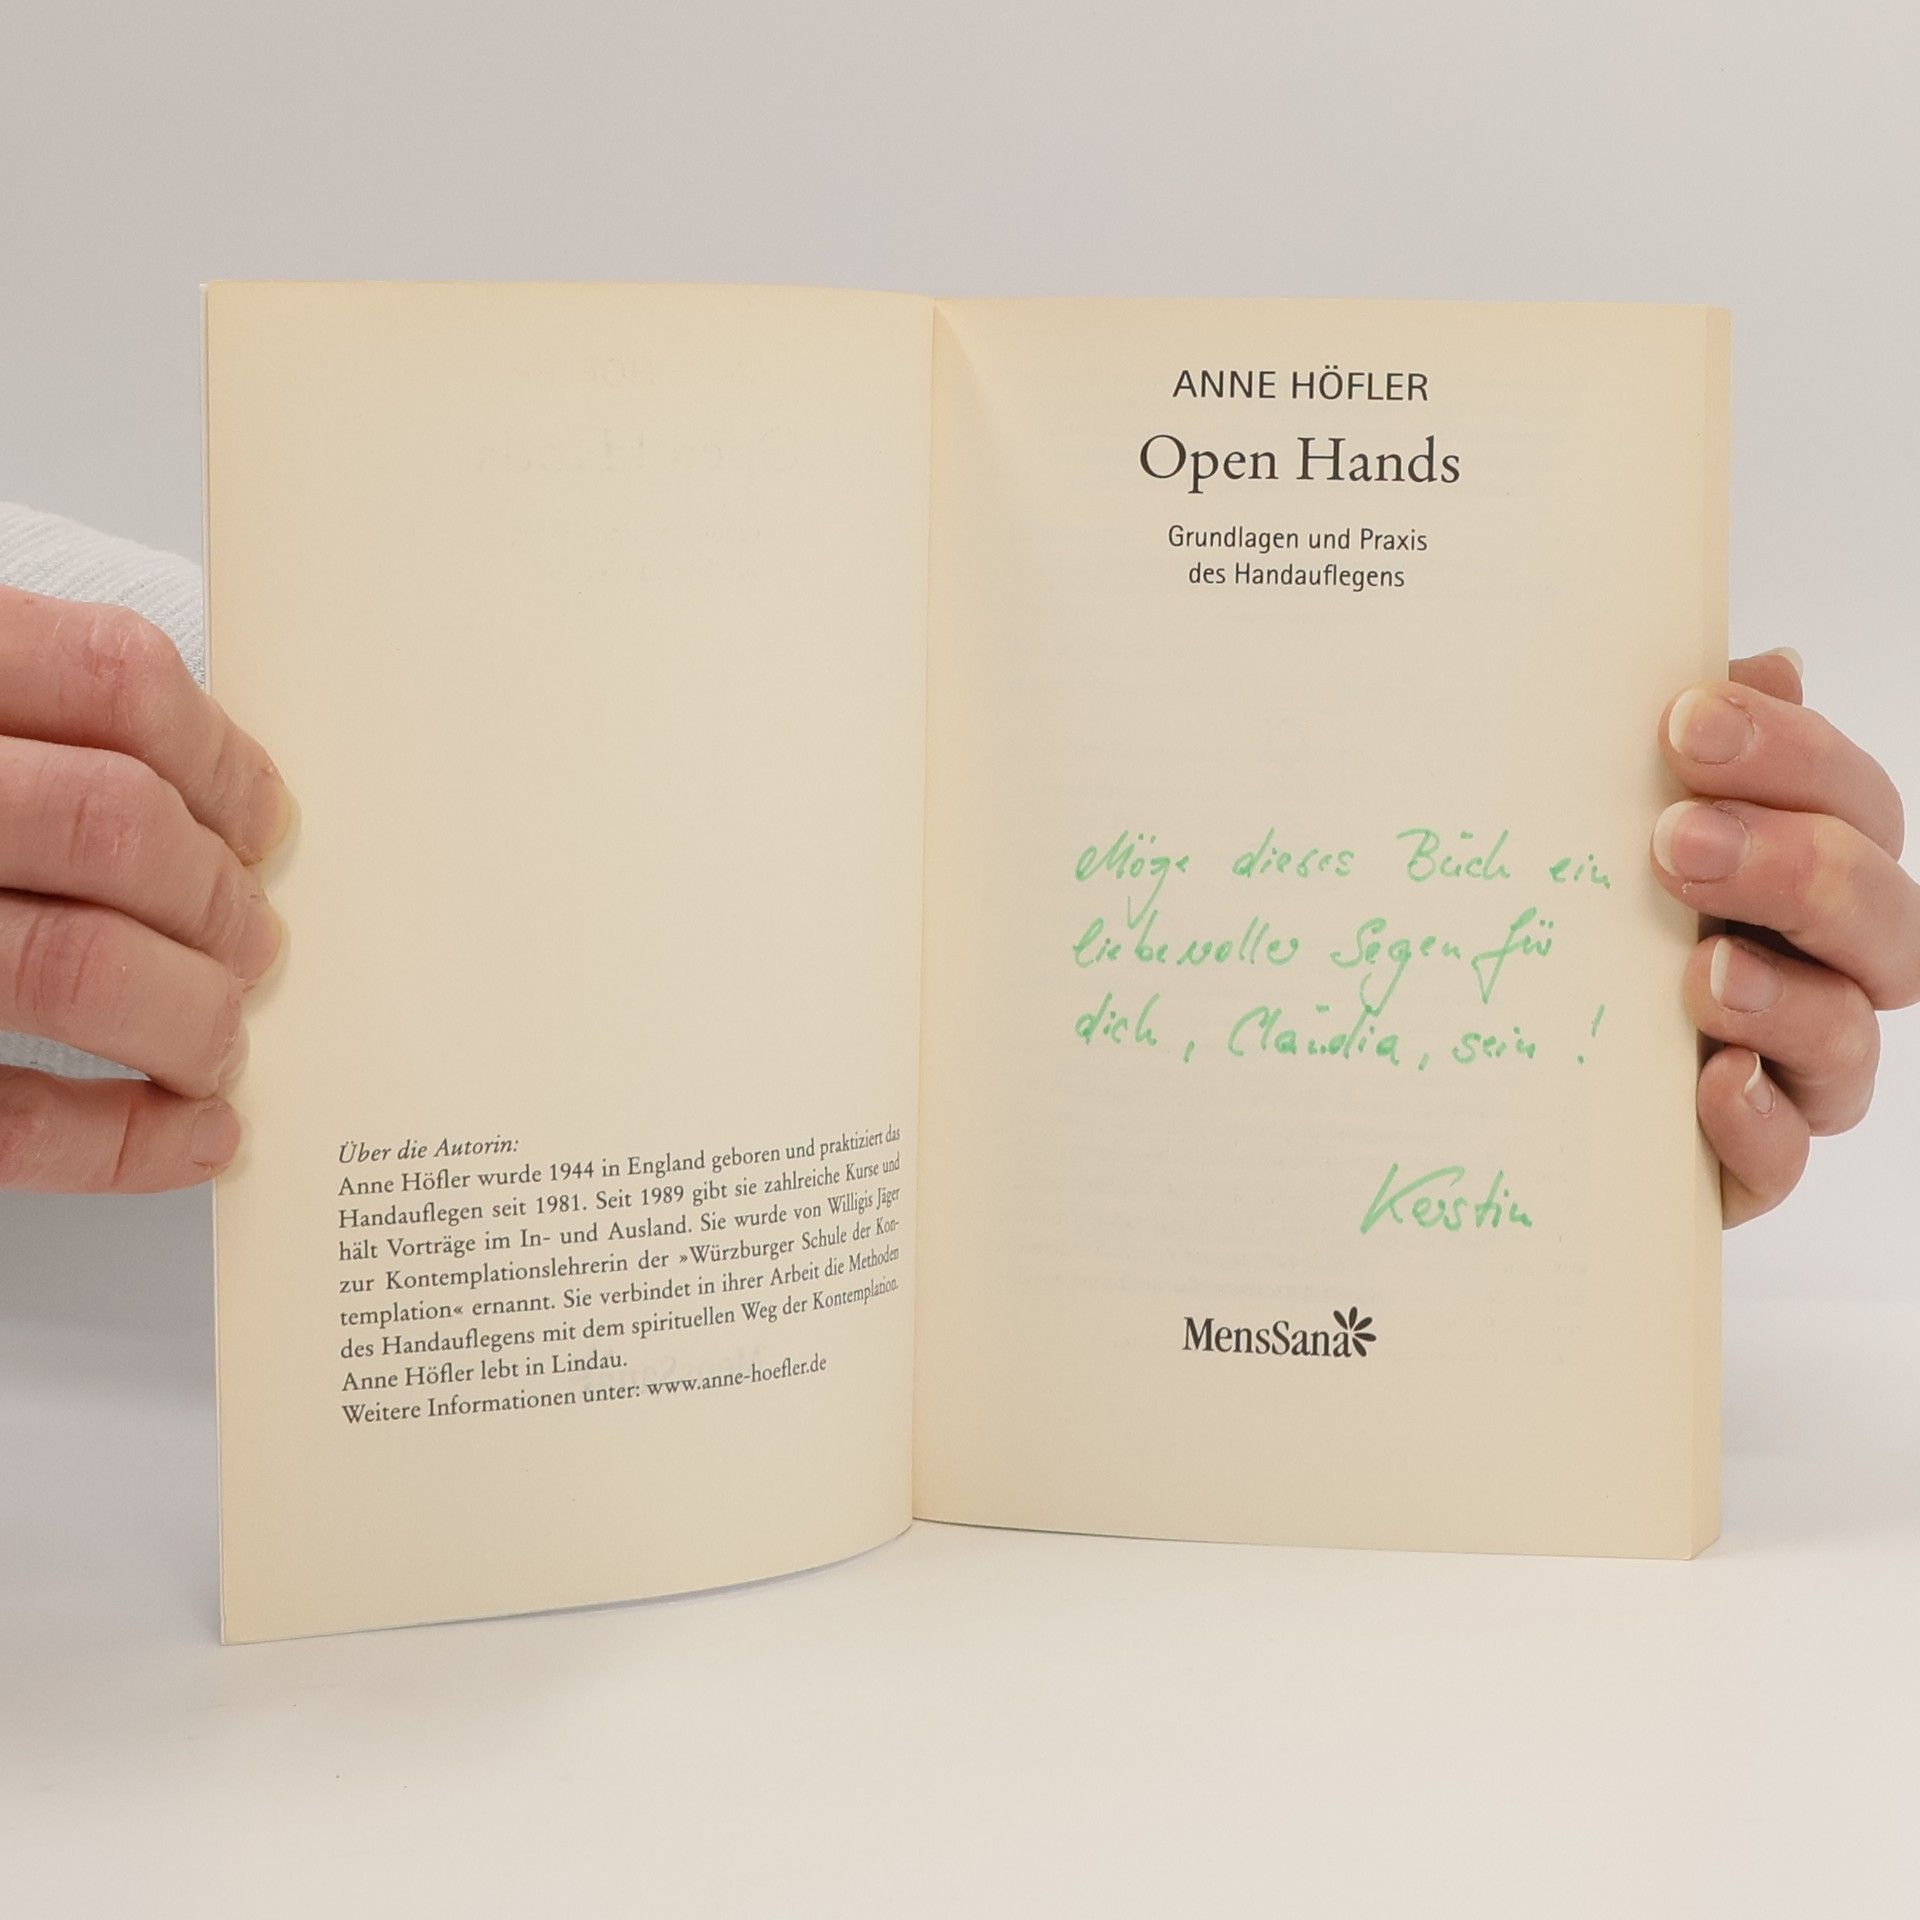 Über die Autorin:
Anne Höfler wurde 1944 in England geboren und praktiziert das
Handauflegen seit 1981. Seit 1989 gibt sie zahlreiche Kurse und
hält Vorträge im In- und Ausland. Sie wurde von Willigis Jäger
zur Kontemplationslehrerin der »Würzburger Schule der Kon-
templation« ernannt. Sie verbindet in ihrer Arbeit die Methoden
des Handauflegens mit dem spirituellen Weg der Kontemplation.
Anne Höfler lebt in Lindau.
Weitere Informationen unter: www.anne-hoefler.de
ANNE HÖFLER
Open Hands
Grundlagen und Praxis
des Handauflegens
Möge dieses Buch ein
liebevoller Segen für
dich, Claudia, sein!
Kerstin
MensSana